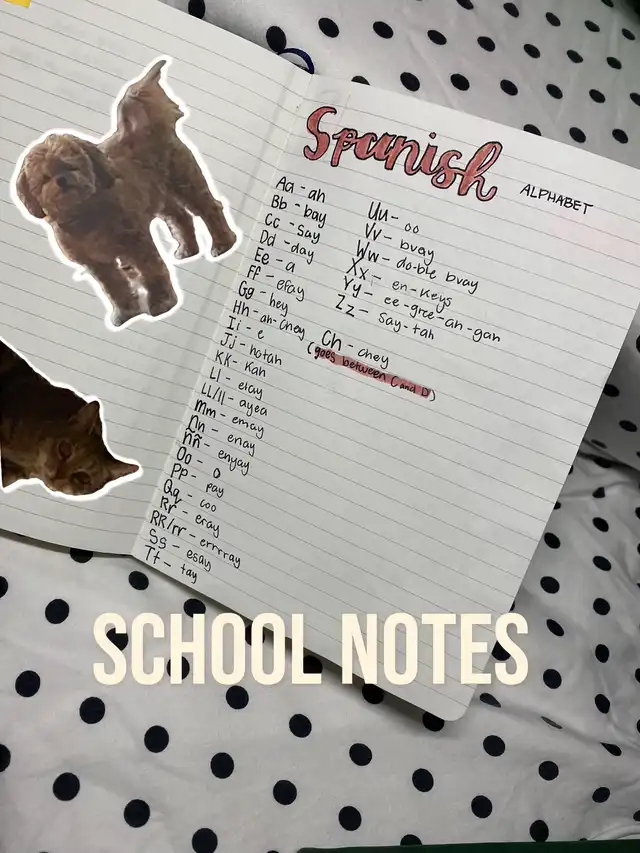 Spanish ALPHABET
Aa - ah
Bb - bay
Cc - say
Dd - day
Ee - a
Ff - efay
Gg - hey
Hh - ah-chey
Ii - e
Jj - hotah
Kk - Kah
Ll - elay
LL/ll - ayea
mm - emay
Nn - enay
Ññ - enyay
Oo - o
Pp - pay
Qq - coo
Rr - eray
RR/rr - errrray
Ss - esay
Tt - tay
Uu - oo
Vv - bvay
Ww - do-ble bvay
Xx - en-Keys
Yy - ee-gree-ah-gah
Zz - say-tah
Ch - chey
(goes between C and D)
SCHOOL NOTES